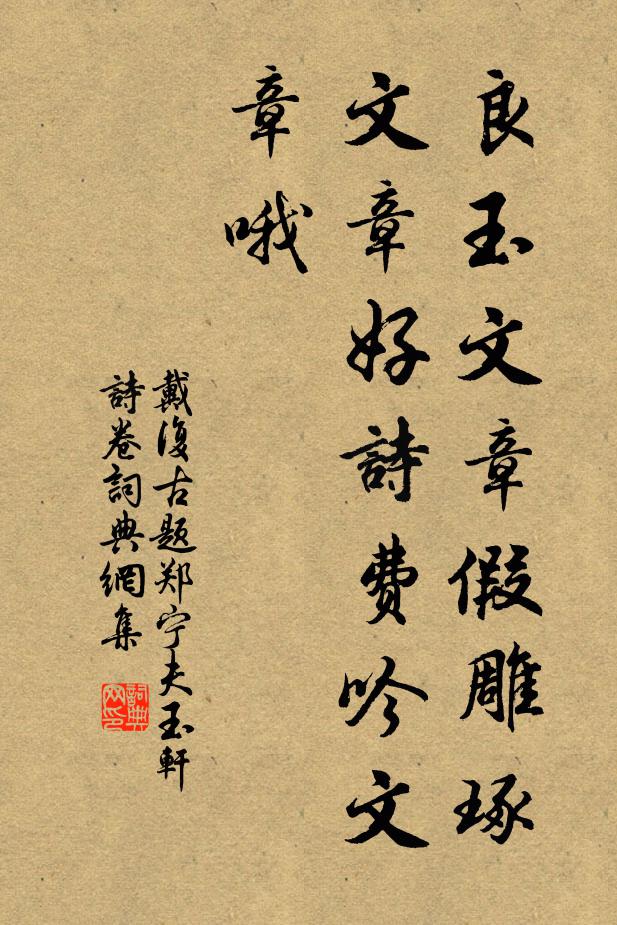 良玉文章假雕琢
文章好詩費吟文
章哦
戴復古题郑宁夫玉軒
詩卷詞典網集
詞典
网印